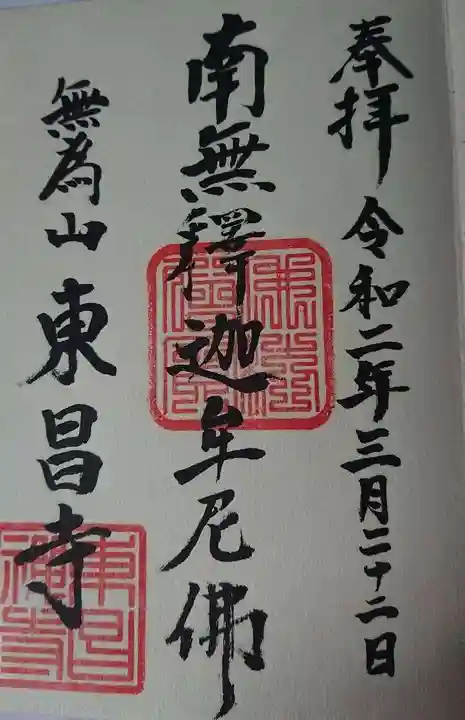 奉拝 令和二年三月二十二日
南無釋迦牟尼佛
無為山 東昌寺